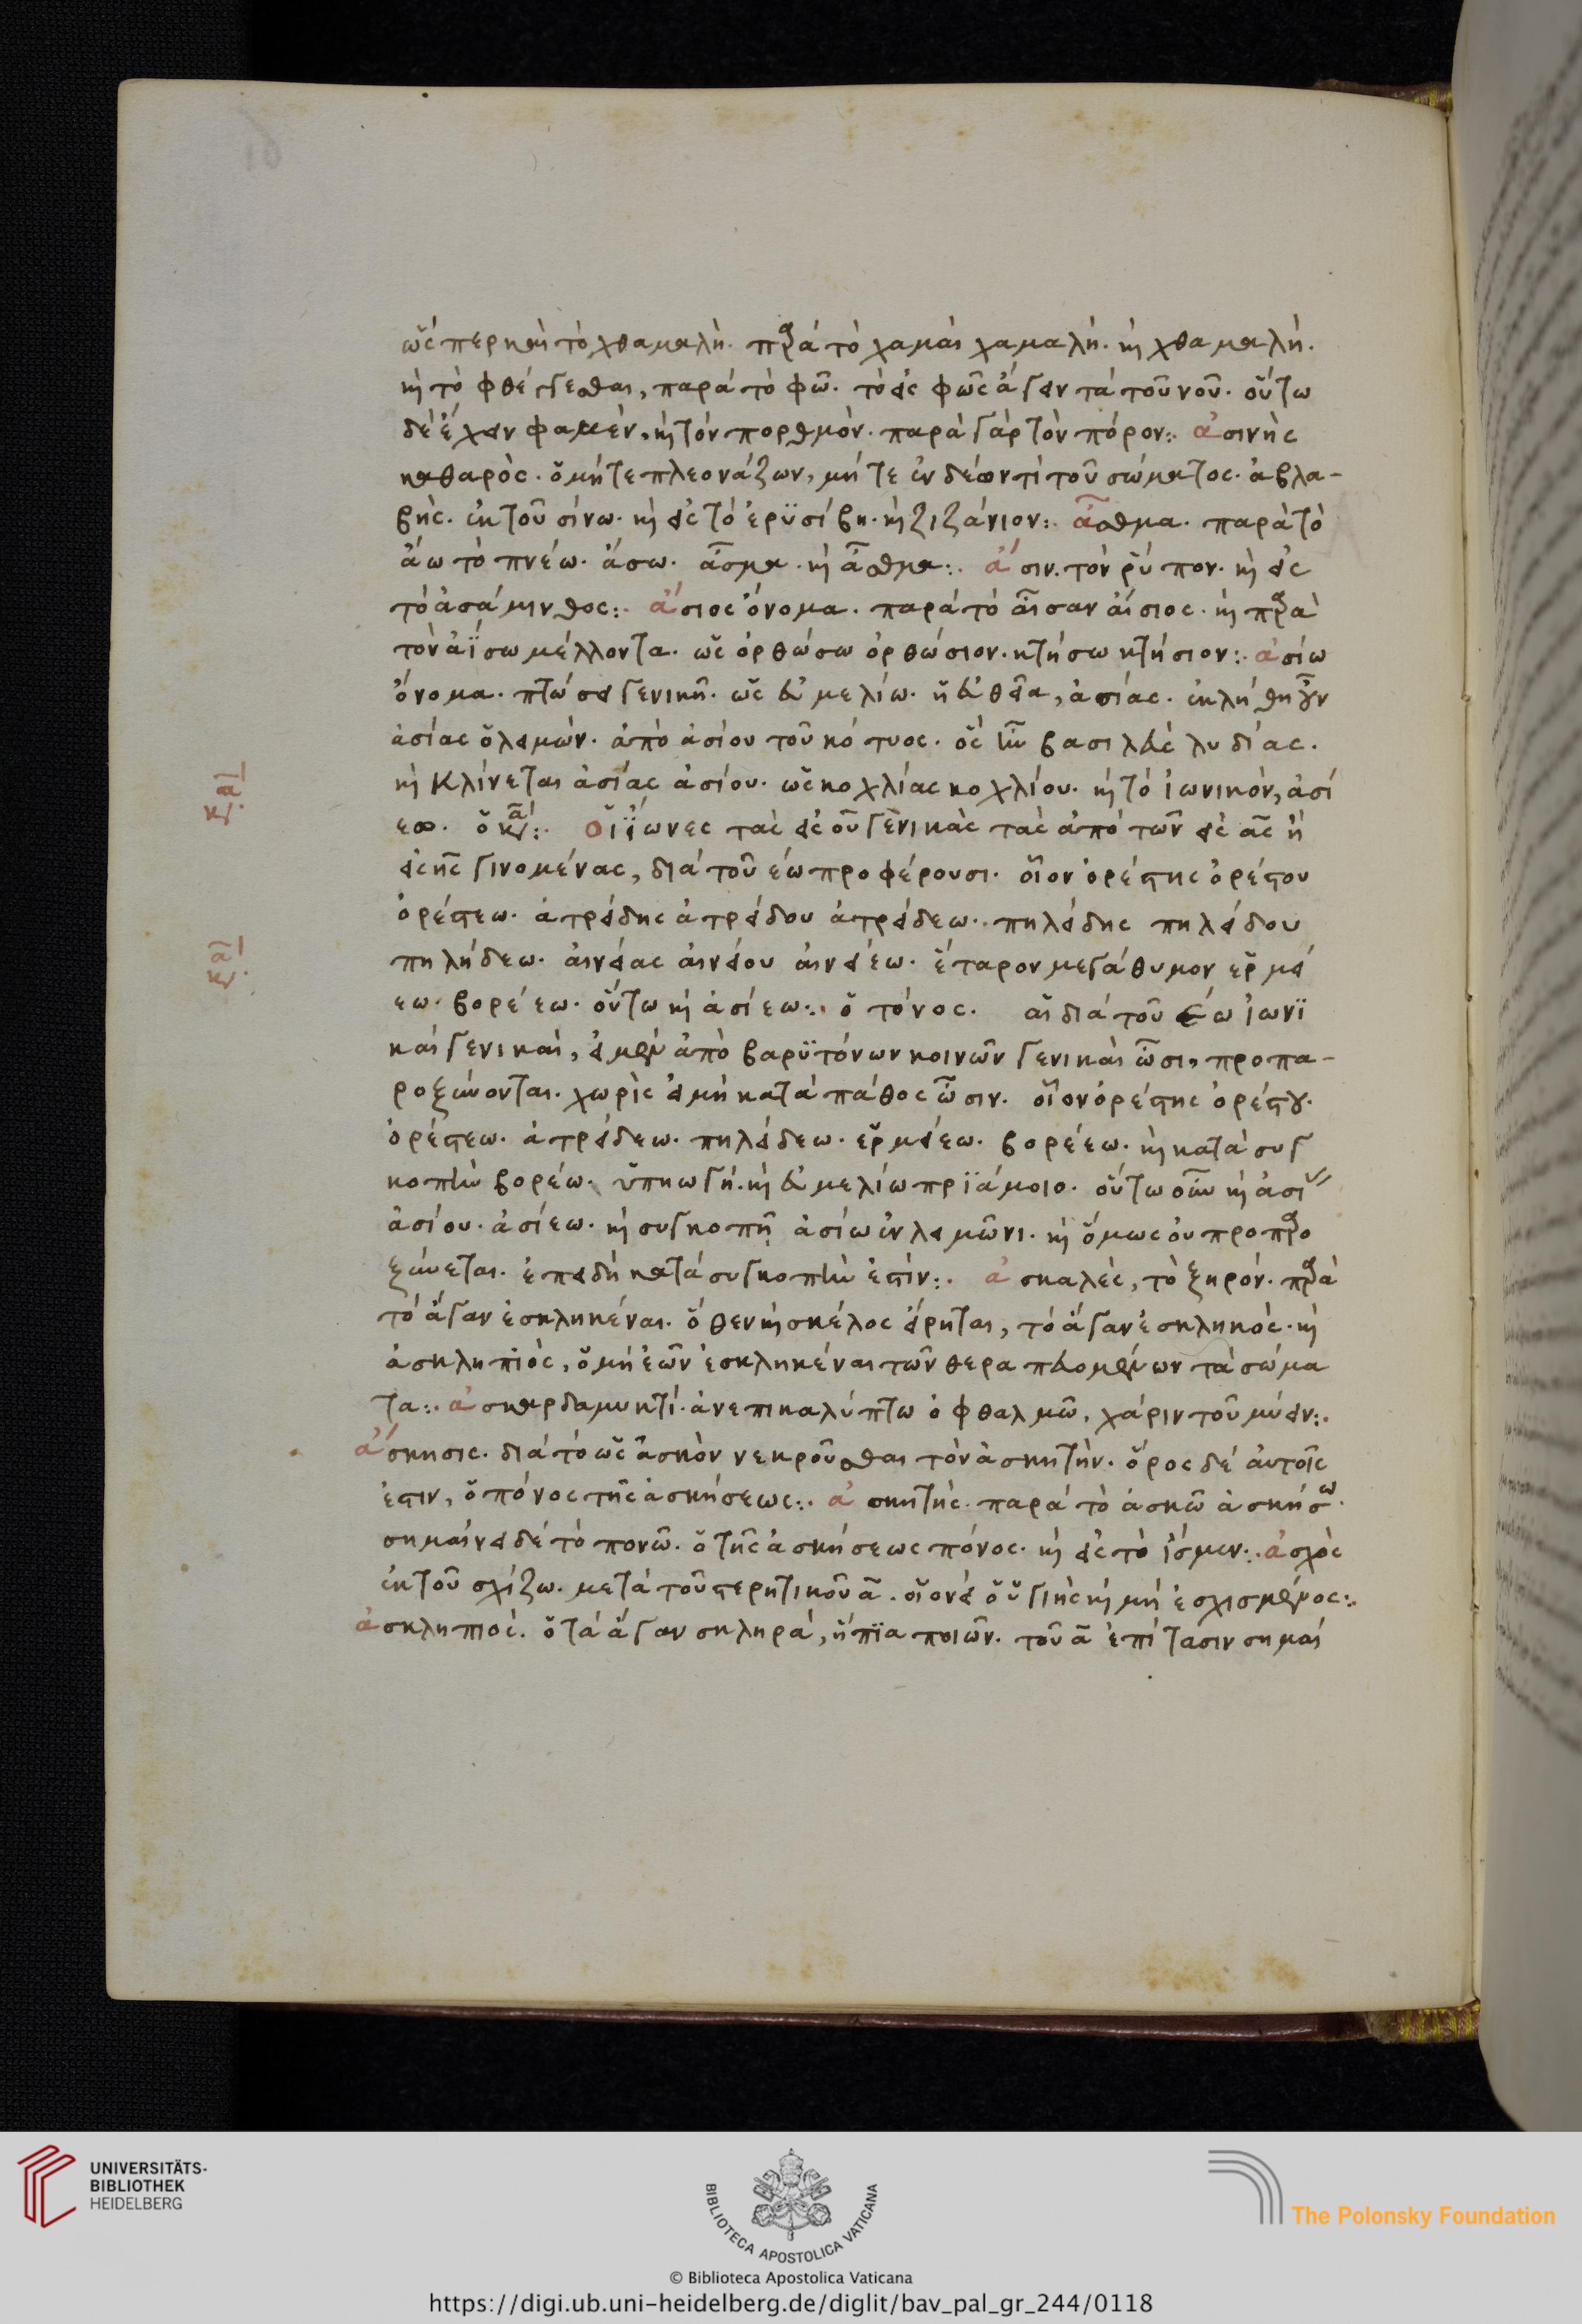 ὥσπερ καὶ τὸ χθαμαλή. παρὰ τὸ χαμαὶ χαμαλή. καὶ χθαμαλή.
καὶ τὸ φθέγγεσθαι, παρὰ τὸ φῶ. τὸ εἰς φῶς ἄγειν τὰ τοῦ νοῦ. οὕτω
δὲ ἔχειν φαμὲν, καὶ τὸν πορθμὸν. παρὰ γὰρ τὸν πόρον:. ἀσινὴς
καθαρὸς. ὁ μήτε πλεονάζων, μήτε ἐνδέων τὶ τοῦ σώματος. ἀβλα-
βὴς. ἐκ τοῦ σίνω. καὶ εἰς τὸ ἐρϋσίβη. καὶ ζιζάνιον:. ἆσθμα. παρὰ τὸ
ἄω τὸ πνέω. ἄσω. ἆσμα. καὶ ἆσθμα:. ἄσιν. τὸν ῥύπον. καὶ εἰς
τὸ ἀσάμινθος:. ἄσιος ὄνομα. παρὰ τὸ αἶσαν αἴσιος. καὶ παρὰ
τὸν ἀΐσω μέλλοντα. ὡς ὀρθώσω ὀρθώσιον. κτήσω κτήσιον:. ἀσίω
ὄνομα. πτώσει γενικῇ. ὡς ἐϋμελίω. ἢ εὐθεῖα, ἀσίας. ἐκλήθη γοῦν
ἀσίας ὁ λειμών. ἀπὸ ἀσίου τοῦ κότυος. ὃς ἦν βασιλεὺς λυδίας.
καὶ κλίνεται ἀσίας ἀσίου. ὡς κοχλίας κοχλίου. καὶ τὸ ἰωνικὸν, ἀσί
εω. ὁ κα:. οἱ ἴωνες τὰς εἰς ου γενικὰς τὰς ἀπὸ τῶν εἰς ας ἢ
εἰς ης γινομένας, διὰ τοῦ εω προφέρουσι. οἷον ὀρέστης ὀρέστου
ὀρέστεω. ἀτρείδης ἀτρείδου ἀτρείδεω. πηλείδης πηλείδου
πηλήδεω. αἰνείας αἰνείου αἰνείέω. ἕταρον μεγάθυμον ἑρμεί
εω. βορέεω. οὕτω καὶ ἀσίεω:. ὁ τόνος. αἱ διὰ τοῦ εω ἰωνϊ
καὶ γενικαὶ, εἰ μὲν ἀπὸ βαρϋτόνων κοινῶν γενικαὶ ὦσι, προπα-
ροξύνονται. χωρὶς εἰ μὴ κατὰ πάθος ὦσιν. οἷον ὀρέστης ὀρέστου.
ὀρέστεω. ἀτρείδεω. πηλείδεω. ἑρμείεω. βορέεω. καὶ κατὰ συγ
κοπὴν βορέω. ὑπηωγή. καὶ ἐϋμελίω πρϊάμοιο. οὕτω οὖν καὶ ἀσι
ἀσίου. ἀσίεω. καὶ συγκοπῇ ἀσίω ἐν λειμῶνι. καὶ ὅμως οὐ προπαρο
ξύνεται. ἐπειδὴ κατὰ συγκοπὴν ἐστίν:. ἀσκαλὲς, τὸ ξηρόν. παρὰ
τὸ ἄγαν ἐσκληκέναι. ὅθεν καὶ σκέλος εἴρηται, τὸ ἄγαν ἐσκληκὸς. καὶ
ἀσκληπιὸς, ὁ μὴ ἐῶν ἐσκληκέναι τῶν θεραπευομένων τὰ σώμα
τα:. ἀσκαρδαμυκτί. ἀνεπικαλύπτω ὀφθαλμῶ, χάριν τοῦ μύειν:.
ἄσκησις. διὰ τὸ ὡς ἀσκὸν νεκροῦσθαι τὸν ἀσκητὴν. ὅρος δὲ αὐτοῖς
ἐστιν, ὁ πόνος τῆς ἀσκήσεως:. ἀσκητὴς. παρὰ τὸ ἀσκῶ ἀσκήσω.
σημαίνει δὲ τὸ πονῶ. ὁ τῆς ἀσκήσεως πόνος. καὶ εἰς τὸ ἴσμεν:. ἀσχὸς
ἐκ τοῦ σχίζω. μετὰ τοῦ στερητικοῦ α. οἱονεὶ ὁ ὑγιὴς καὶ μὴ ἐσχισμένος:.
ἀσκληπιὸς. ὁ τὰ ἄγαν σκληρὰ, ἤπϊα ποιῶν. τοῦ α ἐπίτασιν σημαί
UNIVERSITÄTS-
BIBLIOTHEK
HEIDELBERG
BIBLIOTECA APOSTOLICA VATICANA
The Polonsky Foundation
© Biblioteca Apostolica Vaticana
https://digi.ub.uni-heidelberg.de/diglit/bav_pal_gr_244/0118